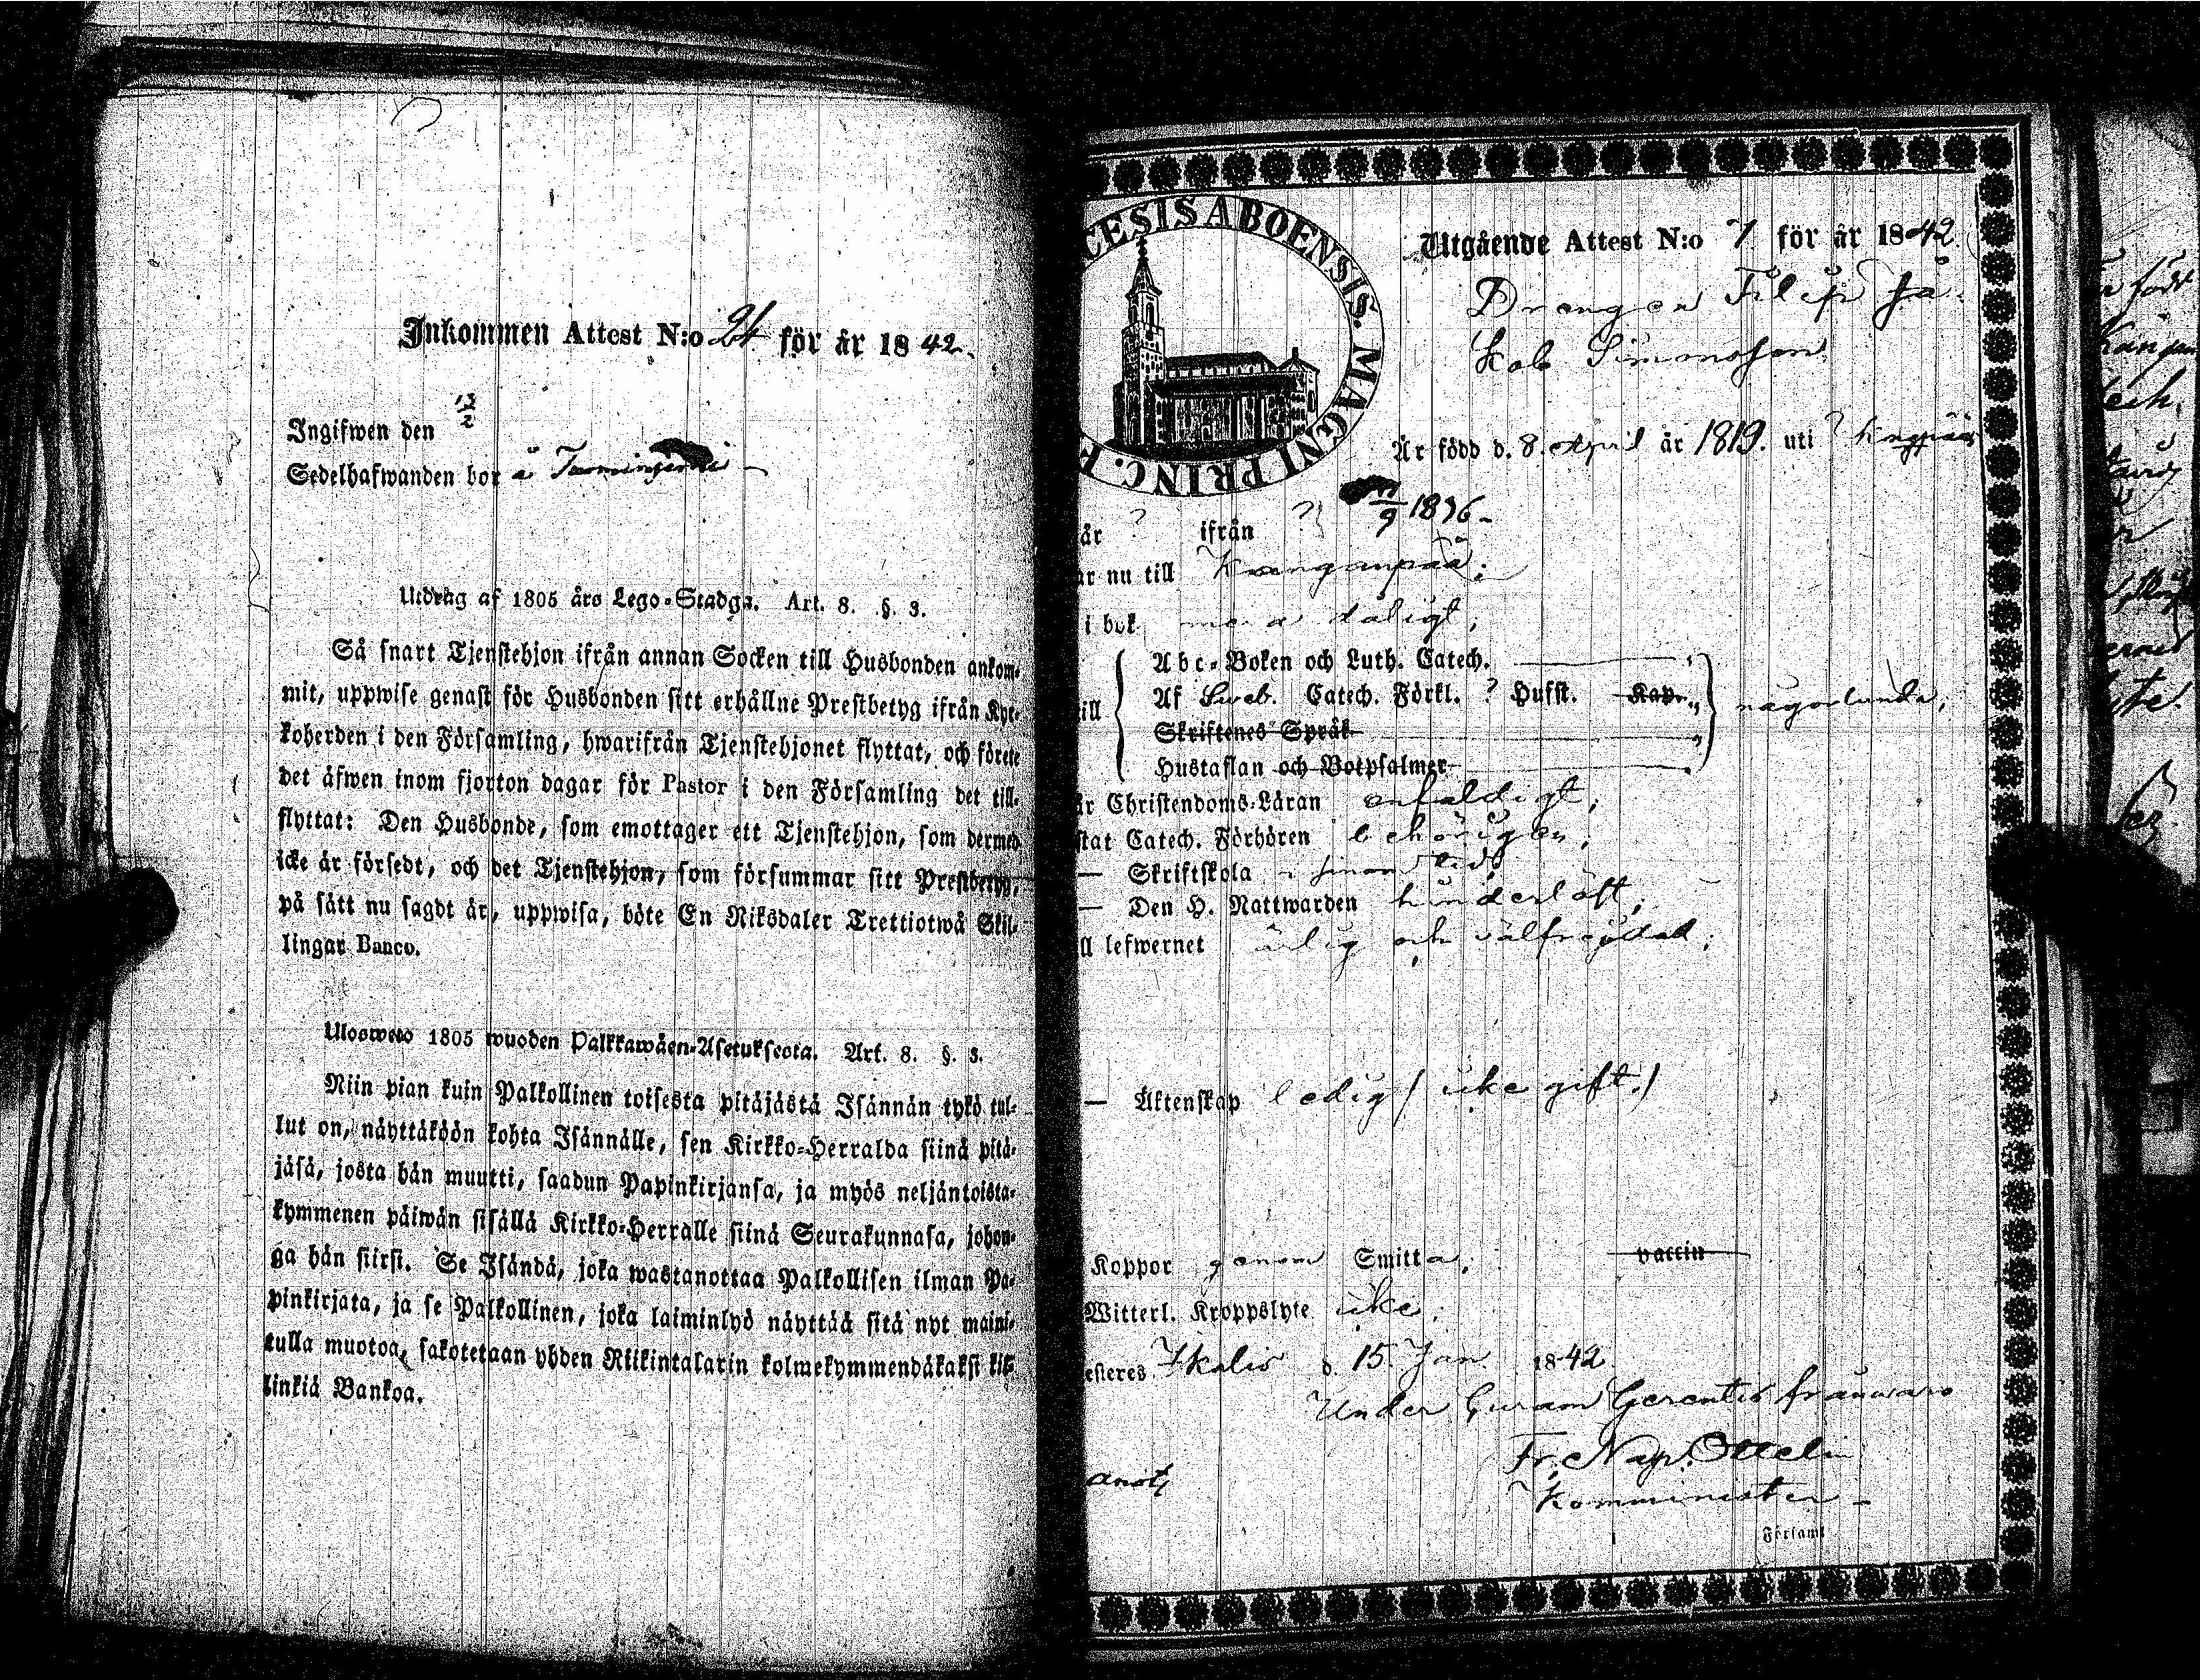 Inkommen Attest N:o 24 för år 1842.
Ingifwen den 13/2
Sedelhafwanden bor å
Utdrag af 1805 års Lego-Stadga. Art. 8. §. 3.
Så snart Tjenstehjon ifrån annan Socken till Husbonden ankom-
mit, uppwise genast för Husbonden sitt erhållne Prestbetyg ifrån Kyr-
koherden i den Församling, hwarifrån Tjenstehjonet flyttat, och förete
det äfwen inom fjorton dagar för Pastor i den Församling det till-
flyttat: Den Husbonde, som emottager ett Tjenstehjon, som dermed
icke är försedt, och det Tjenstehjon, som försummar sitt Prestbetyg,
på sätt nu sagdt är, uppwisa, böte En Riksdaler Trettiotwå Skil-
lingar Banco.
Ulosweto 1805 wuoden Palkkawäen-Asetuksesta. Art. 8. §. 3.
Niin pian kuin Palkollinen toisesta pitäjästä Isännän tykö tul-
lut on, näyttäköön kohta Isännälle, sen Kirkko-Herralda siinä pitä-
jäsä, josta hän muutti, saadun Papinkirjansa, ja myös neljäntoista-
kymmenen päiwän sisällä Kirkko-Herralle siinä Seurakunnasa, johon-
ga hän siirsi. Se Isändä, joka wastanottaa Palkollisen ilman Pa-
pinkirjata, ja se Palkollinen, joka laiminlyö näyttää sitä nyt maini-
tulla muotoa, sakotetaan yhden Riikintalarin kolmekymmendäkaksi kil-
linkiä Bankoa.
CESIS ABOENSIS. MAGNI PRINC. F
Utgående Attest N:o 7 för år 1842
Drengen Filip Ja-
kob Simonsson
Är född d. 8. April år 1819. uti ?
år ? ifrån ? 9 1836-
ar nu till Kanganpää;
i bok mera daligt;
Abc-Boken och Luth. Catech.
till Af Sweb. Catech. Förkl. ? Hufst. Kap. någorlunda;
Skriftenes Språk
Hustaflan och Botpsalmer
är Christendoms-Läran enfaldigt;
stat Catech. Förhören behörigen;
— Skriftskola i sinom tid
— Den H. Nattwarden
ll lefwernet ärlig och välfrejdad;
— Äktenskap ledig / icke gift /
Koppor genom Smitta, vaccin
Witterl. Kroppslyte icke;
esteres Ikalis d. 15. Jan. 1842
Under Curam Gerentis frånwaro
Fr. Nap. Ottelin
Komminister
Församl